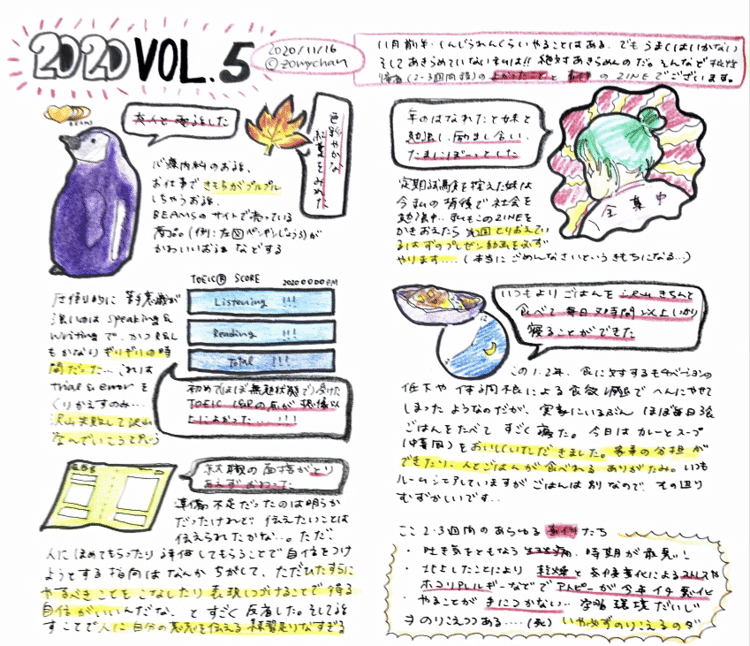 2020 VOL.5
2020/11/16
©zomychan
11月前半、しんどうれんくらいやることはある、でもうまくはいかない
そしてあきらめていないものは!! 絶対あきらめんのだ。そんなで
(2-3週間頃)のよかったこと と 事件 の ZINE でございます。
BEAMS
友人と電話をした
色鮮やかな
紅葉をみた
心療内科のお話、
お仕事できもちがプルプル
しちゃうお話、
BEAMSのサイトで売っている
商品(例:左図ペンギンじょうろ)が
かわいいお話 などする
TOEIC® SCORE
Listening !!!
Reading !!!
Total !!!
圧倒的に苦手意識が
強いのは speaking &
writing で、かつ
もかなりギリギリの時
間だった…これは
trial & error を
くりかえすのみ…
沢山失敗して沢山
学んでいこうと思う
初めてほぼ無勉状態で受けた
TOEIC L&Rの点が想像以
上によかった…!!!
転職の面接がとり
あえずおわった
準備不足だったのは明らか
だったけれど、伝えたいことは
伝えられたかな…。ただ、
人にほめてもらったり評価してもらうことで自信をつけ
ようとする指向はなんかちがくて、ただひたすらに
やるべきことをこなしたり表現しつづけることで得る
自信がいいんだな、とすごく反省した。そして話
すことで人に自分の意志を伝える練習足りなすぎる
年のはなれた妹と
勉強し、励まし合い、
たまにぼーっとした
定期試験を控えた妹は
今私の背後で社会を
勉強中…私もこのZINEを
かきおえたら
るはずのプレゼン動画を必ず
やります…。(本当にごめんなさいというきもちになる…)
全真中
いつもよりごはんを沢山きちんと
食べて毎日7時間以上しっかり
寝ることができた
この1,2年、食に対するモチベーションの
低下や体調不良による食欲減退でへんにやせて
しまったようなのだが、実家にいるぶんほぼ毎日3食
ごはんをたべてすごく寝た。今日はカレーとスープ
をおいしくいただきました。家事の分担が
できたり、人とごはんが食べれるありがたみ。いつも
ルームシェアしていますがごはんは別なので、その辺り
むずかしいです…
ここ2-3週間のあらゆる事件たち
・吐き気をともなう 時期が最悪!
・北上したことにより乾燥と気候変化によるストレスや
ホコリアレルギーなどでアトピーが今年イチ悪化
・やることが手につかない… 空間環境だいじ
・のりこえつつある…(死) いや必ずのりこえるのダ